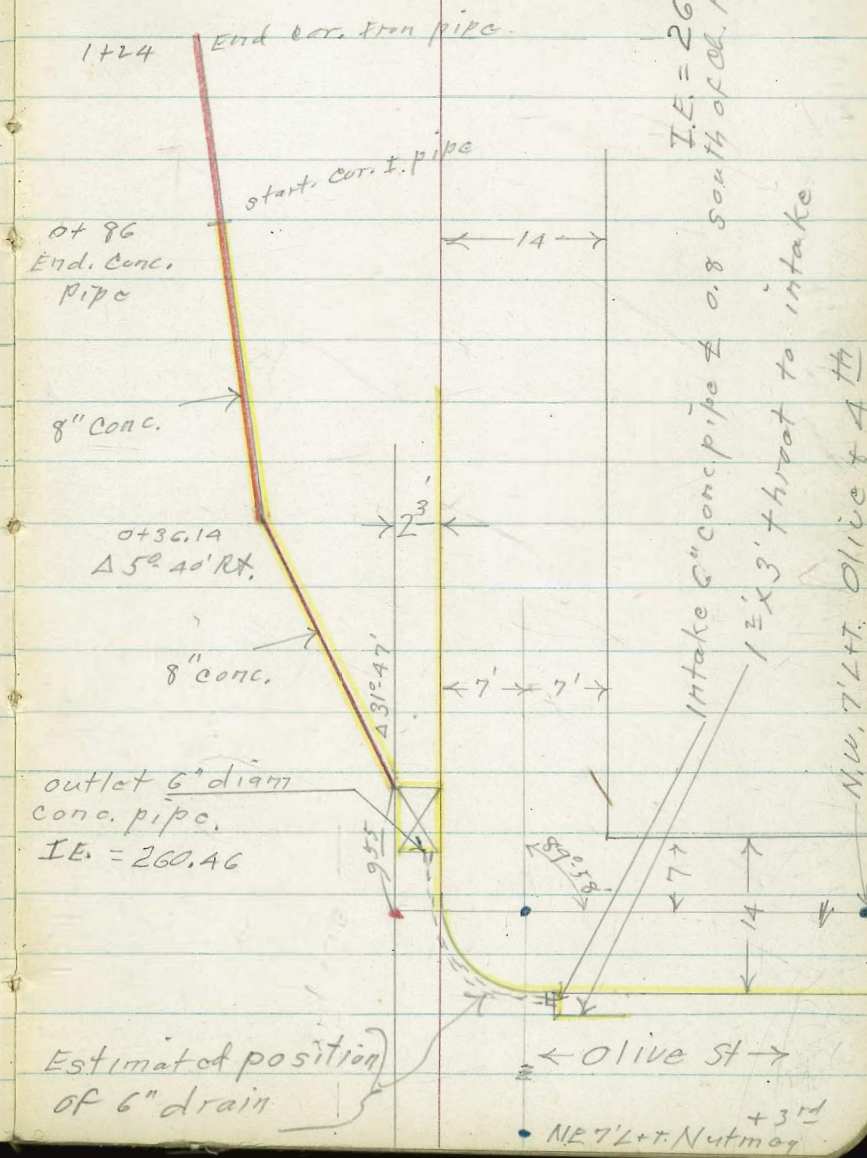 1+24
End cor. Iron pipe.
start. cor. I. pipe
0+86
End. Conc.
Pipe
← 14 →
8" conc.
2 3'
0+36.14
Δ 5° 40' Rt.
8" conc.
Δ 31°-47'
← 7' → ← 7' →
outlet 6" diam
conc. pipe.
I.E. = 260.46
9 55
89°-58'
7
14
Estimated position
of 6" drain
← Olive St →
+ 3rd
NE 7' L+T. Nutmeg
I.E. = 26
Intake 6" conc pipe & 0.8 south of ch.
1 2' x 3' throat to intake
N.W. 7' L+T. Olive + 4 th